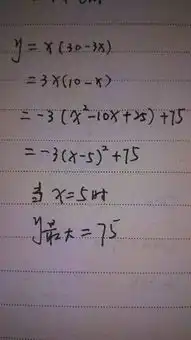 y = x(30-3x)
= 3x(10-x)
= -3(x²-10x+25)+75
= -3(x-5)²+75
当 x=5时
y最大=75